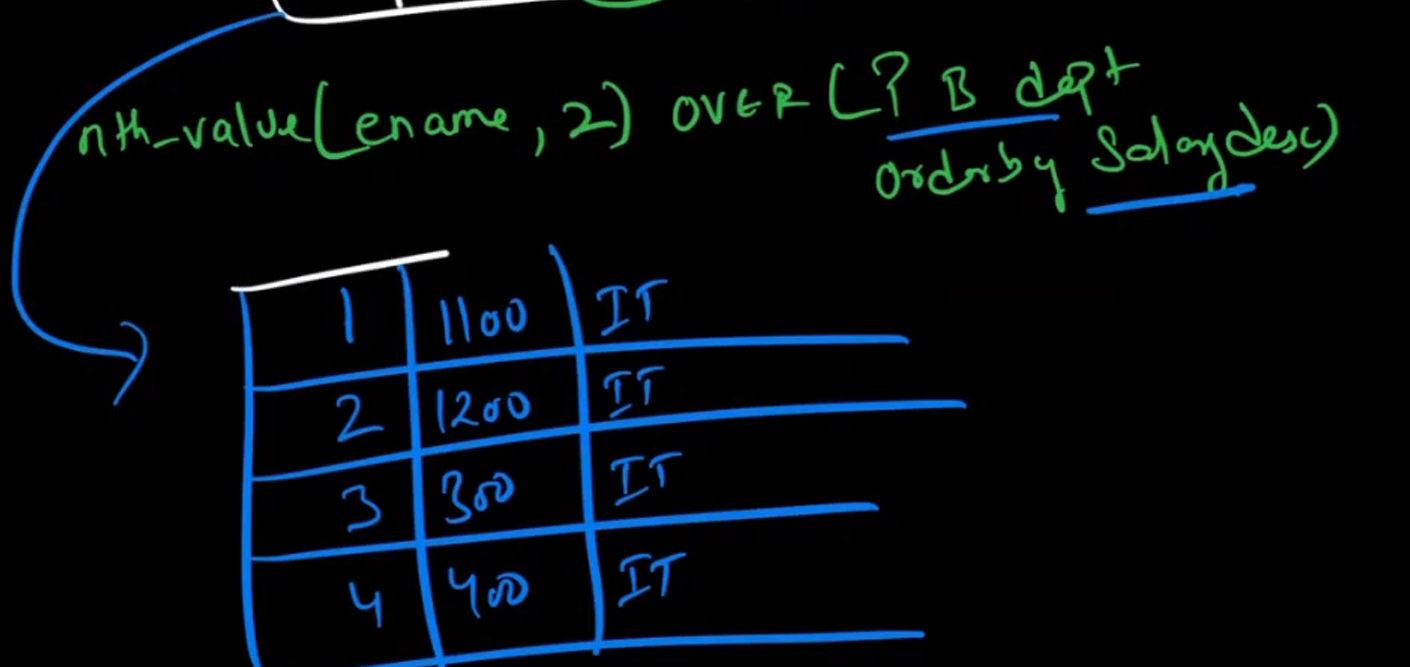 nth_value(ename, 2) OVER (P B dept
order by Salary desc)
1 1100 IT
2 1200 IT
3 300 IT
4 400 IT